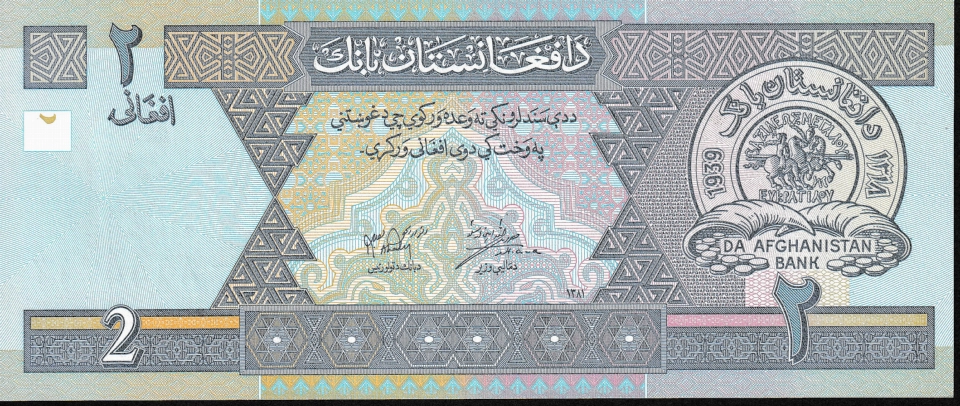 د افغانستان بانک
۲
افغانۍ
ددې سند لرونکي ته وعده ورکوي چې د غوښتنې
په وخت کې دوی افغانۍ ورکړي.
د افغانستان بانک
1939
۱۳۱۸
ΕΥΚΡΑΤΙΔΟΥ
DA AFGHANISTAN
BANK
د بانک د لوی رئیس
د مالیې وزیر
۱۳۸۱
2
۲